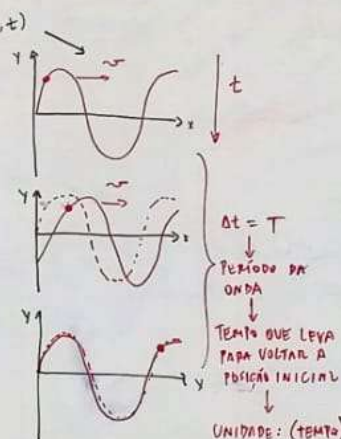 ,t)
y
v
x
t
y
v
x
Δt = T
PERÍODO DA
ONDA
TEMPO QUE LEVA
PARA VOLTAR A
POSIÇÃO INICIAL
y
y
UNIDADE: (TEMPO)